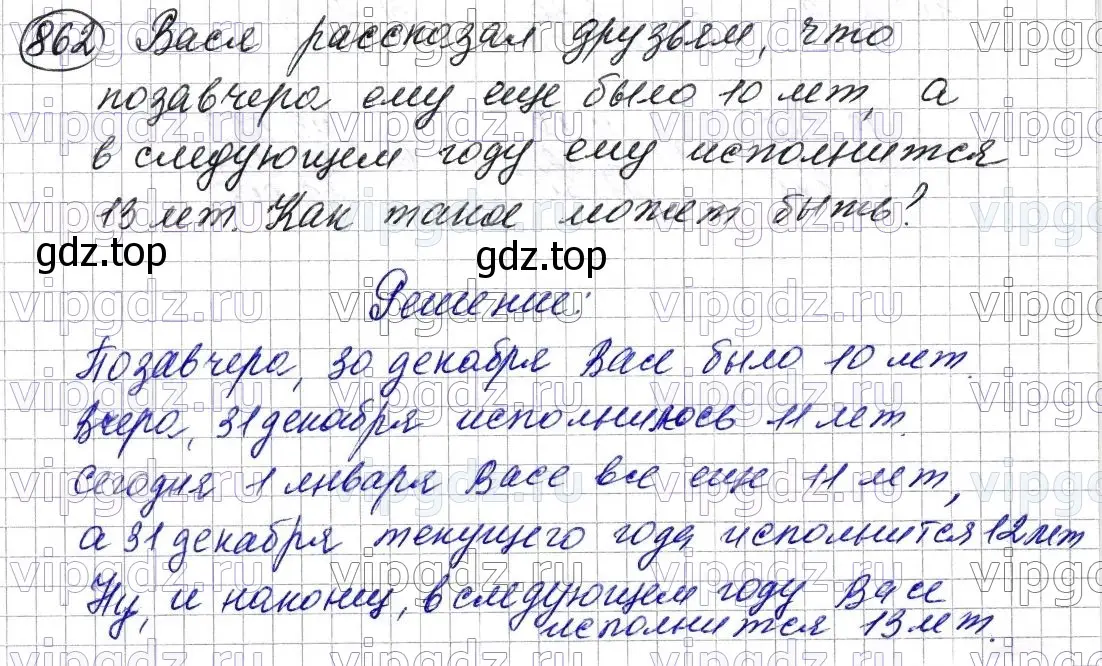 862 Вася рассказал друзьям, что
позавчера ему еще было 10 лет, а
в следующем году ему исполнится
13 лет. Как такое может быть?
gdz.top gdz.top
Решение:
Позавчера, 30 декабря Васе было 10 лет.
Вчера, 31 декабря исполнилось 11 лет.
Сегодня 1 января Васе все еще 11 лет,
а 31 декабря текущего года исполнится 12 лет
Ну, и наконец, в следующем году Васе
исполнится 13 лет.